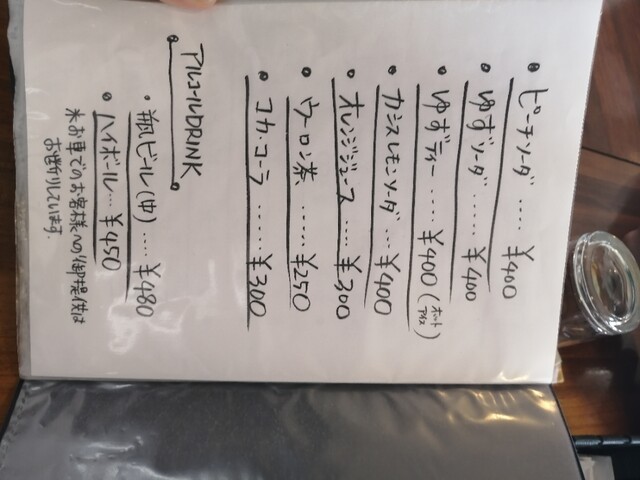 • ピーチソーダ ..... ¥400
• ゆずソーダ ...... ¥400
• ゆずティー ..... ¥400 (ホット アイス)
• カシスレモンソーダ ... ¥400
• オレンジジュース ..... ¥300
• ウーロン茶 ...... ¥250
• コカ・コーラ ...... ¥300
アルコールDRINK
• 瓶ビール(中) .... ¥480
• ハイボール ... ¥450
※お車でのお客様への御提供は
お断りしています。